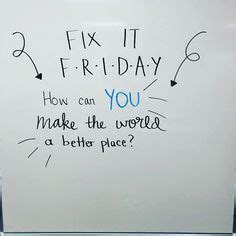 FIX IT
F·R·I·D·A·Y
How can YOU
make the world
a better place?